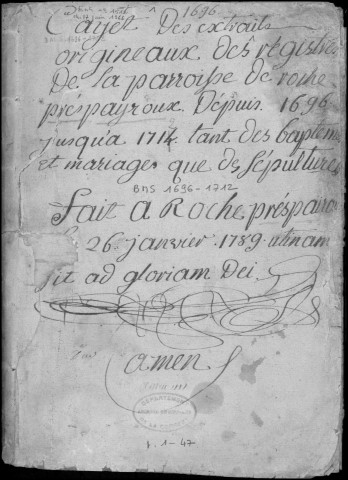 1 1696
Cayet Des extraits
origineaux des régistres
De la parroisse de roche
préspayroux. Dépuis. 1696
jusqu'a 1714. tant des baptemes
et mariages que des Sépultures
BMS 1696-1712
Fait a Roche préspairoux
26. janvier. 1789. utinam
sit ad gloriam Dei.
amen
DEPARTEMENT
DE LA CORREZE
f. 1-47